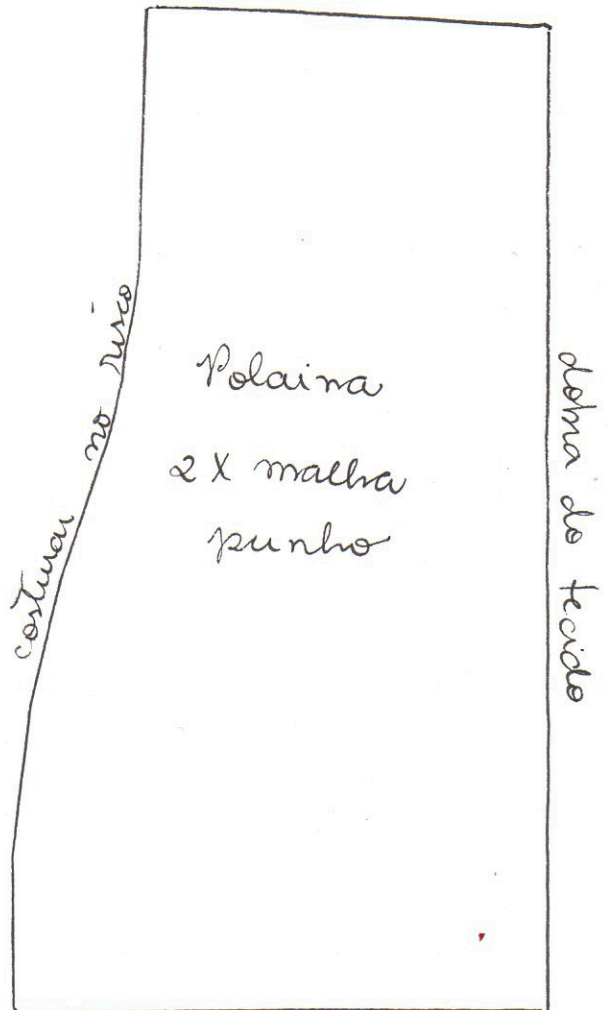 costurar no risco
Polaina
2 X malha
punho
dobra do tecido